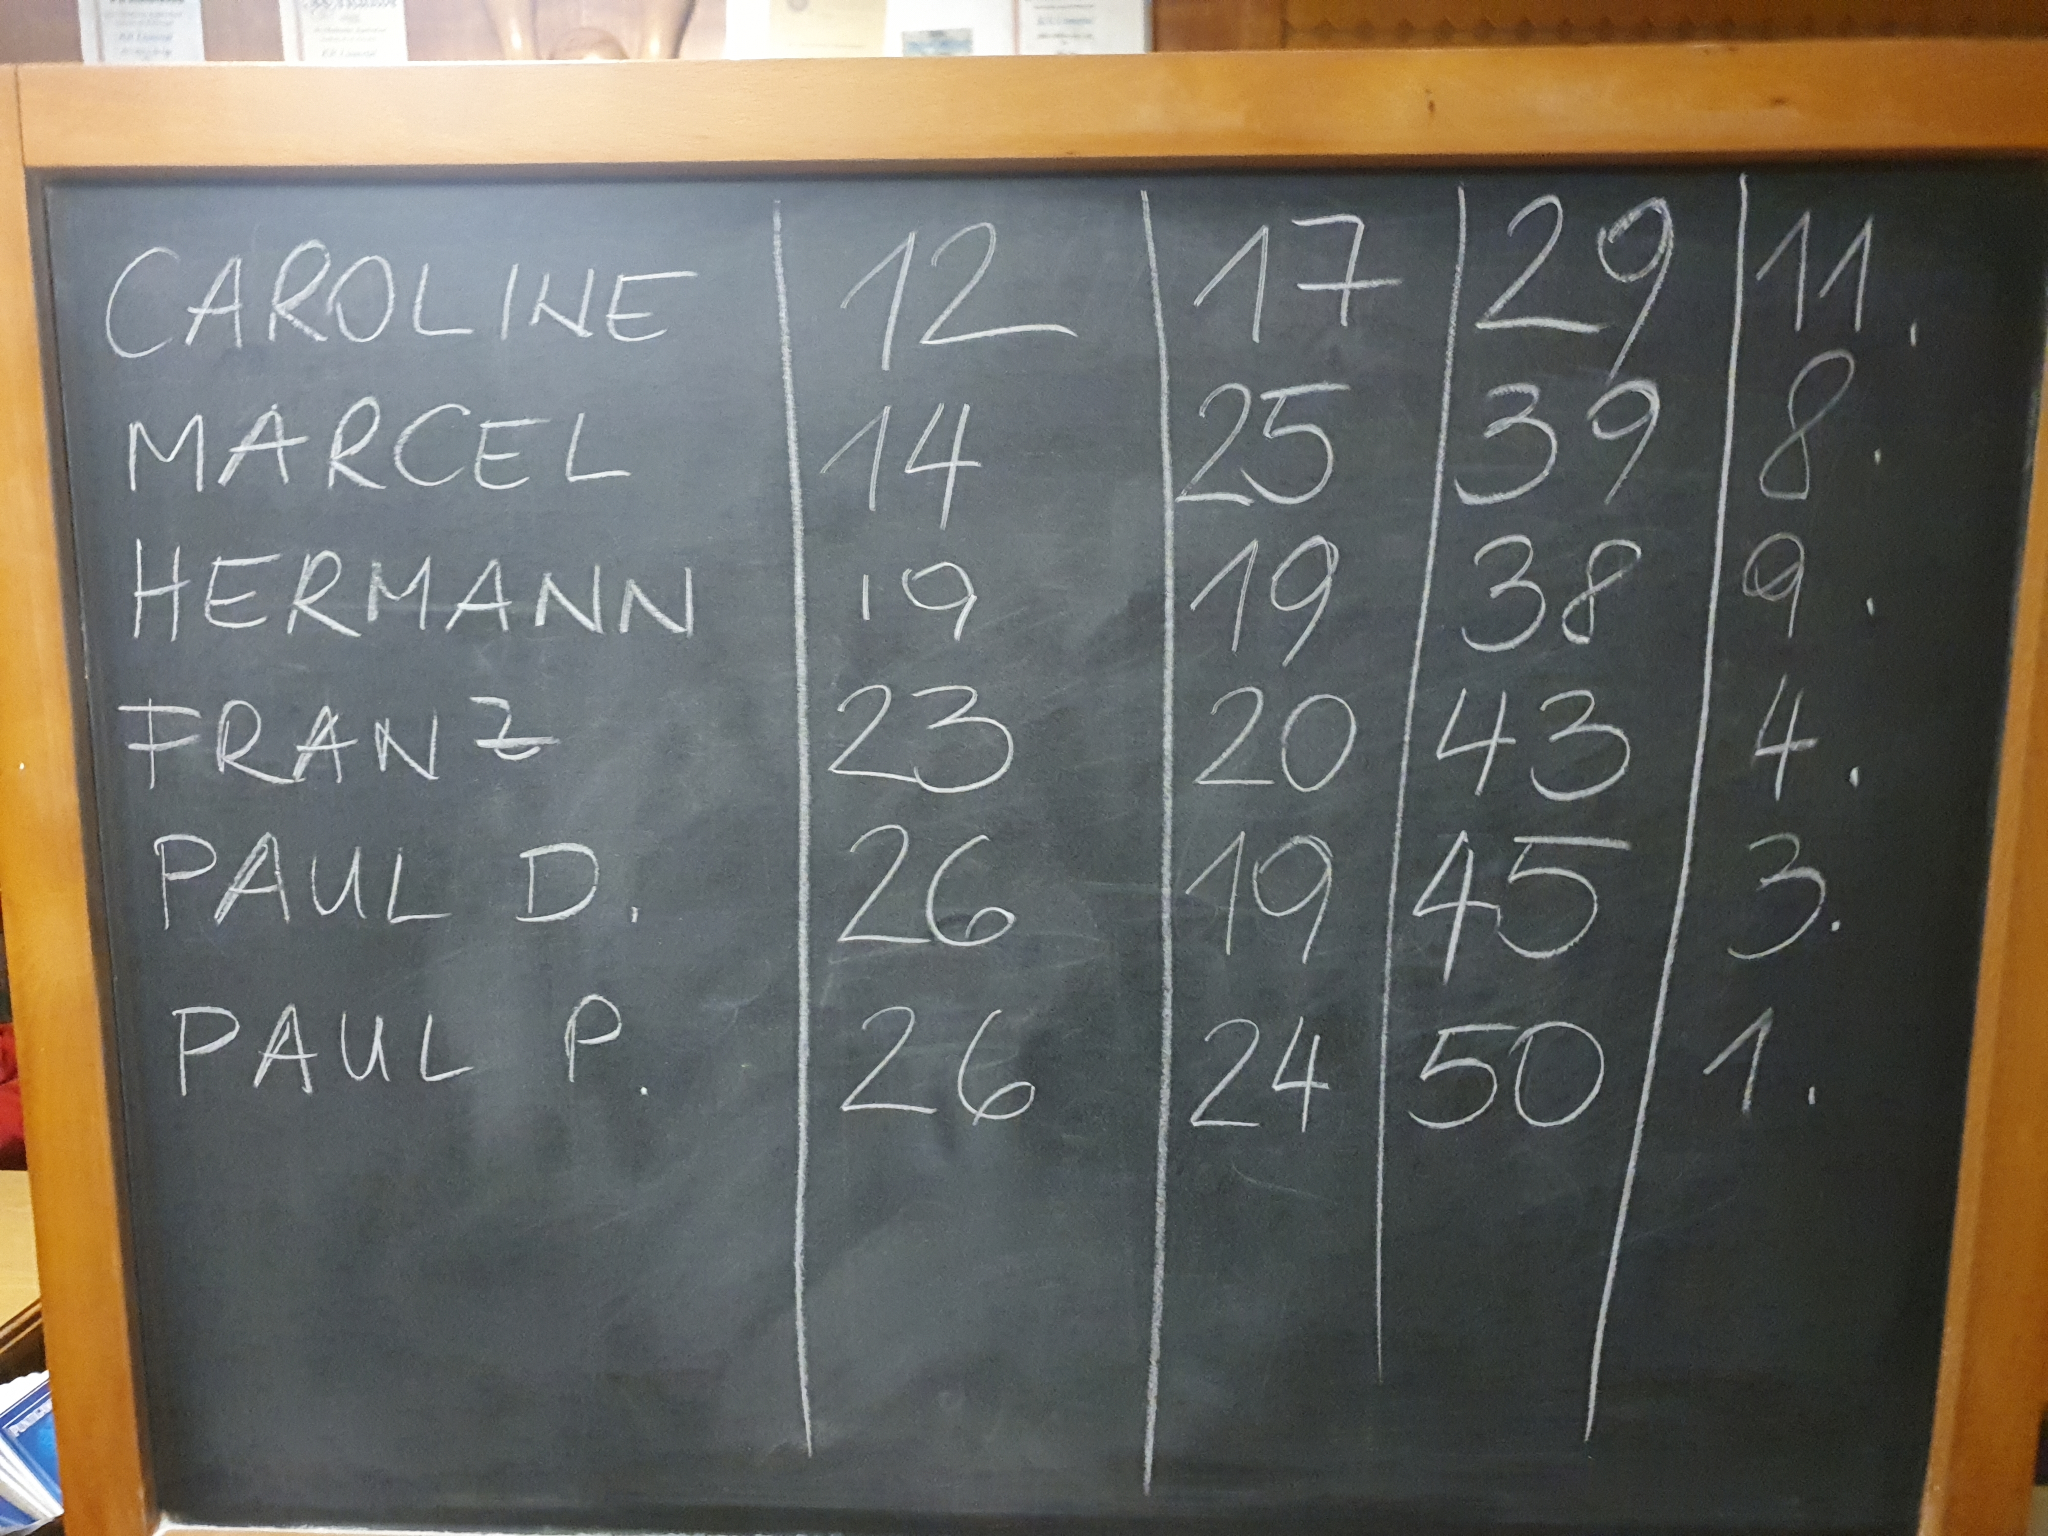 CAROLINE 12 17 29 11.
MARCEL 14 25 39 8.
HERMANN 19 19 38 9.
FRANZ 23 20 43 4.
PAUL D. 26 19 45 3.
PAUL P. 26 24 50 1.